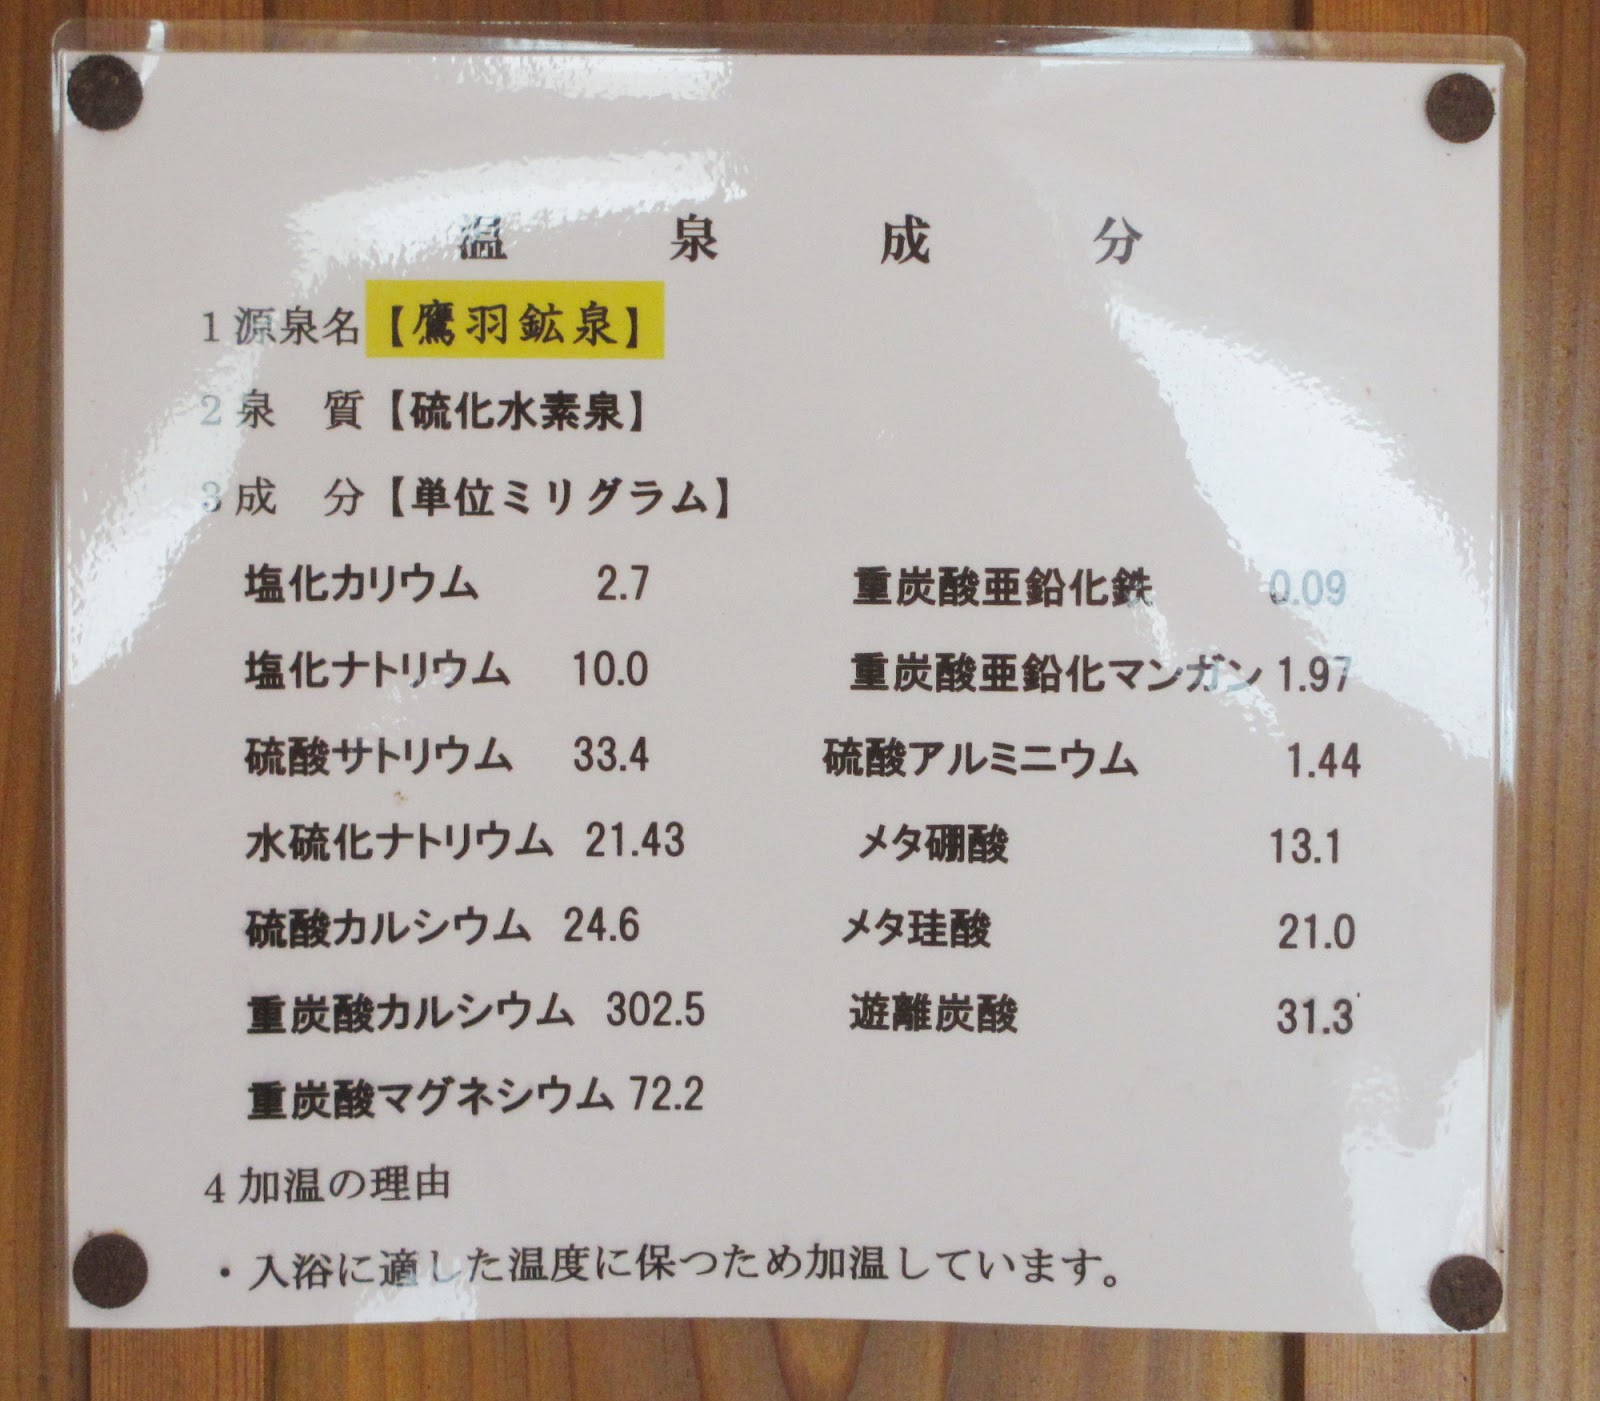 温泉成分
1 源泉名【鷹羽鉱泉】
2 泉　質【硫化水素泉】
3 成　分【単位ミリグラム】
塩化カリウム 2.7 重炭酸亜鉛化鉄 0.09
塩化ナトリウム 10.0 重炭酸亜鉛化マンガン 1.97
硫酸サトリウム 33.4 硫酸アルミニウム 1.44
水硫化ナトリウム 21.43 メタ硼酸 13.1
硫酸カルシウム 24.6 メタ珪酸 21.0
重炭酸カルシウム 302.5 遊離炭酸 31.3
重炭酸マグネシウム 72.2
4 加温の理由
・入浴に適した温度に保つため加温しています。